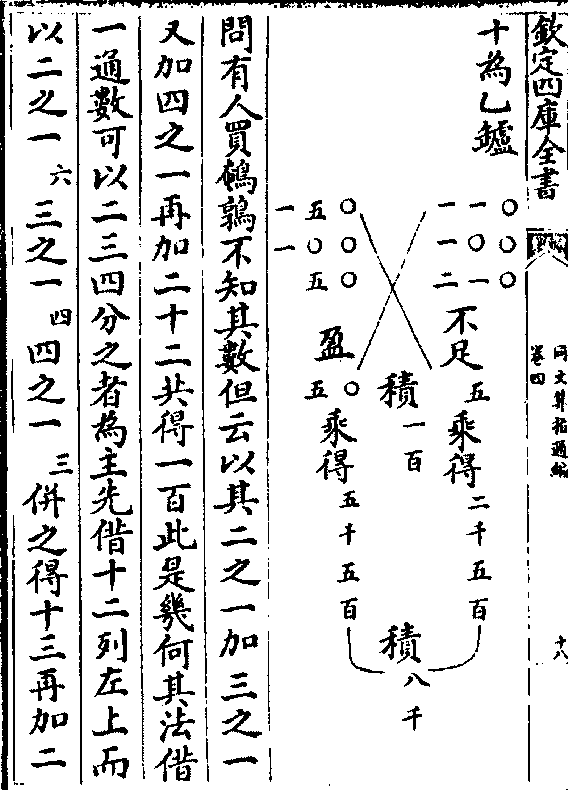 欽定四庫全書
同文算指通編
卷四
十八
十為乙鑪
一一〇
一〇〇
二一〇
不足
五
乘得
二千五百
積
一百
積
八千
一五〇
一〇〇
五〇
盈
五〇
乘得
五千五百
問有人買鵪鶉不知其數但云以其二之一加三之一
又加四之一再加二十二共得一百此是幾何其法借
一通數可以二三四分之者為主先借十二列左上而
以二之一六三之一四四之一三併之得十三再加二